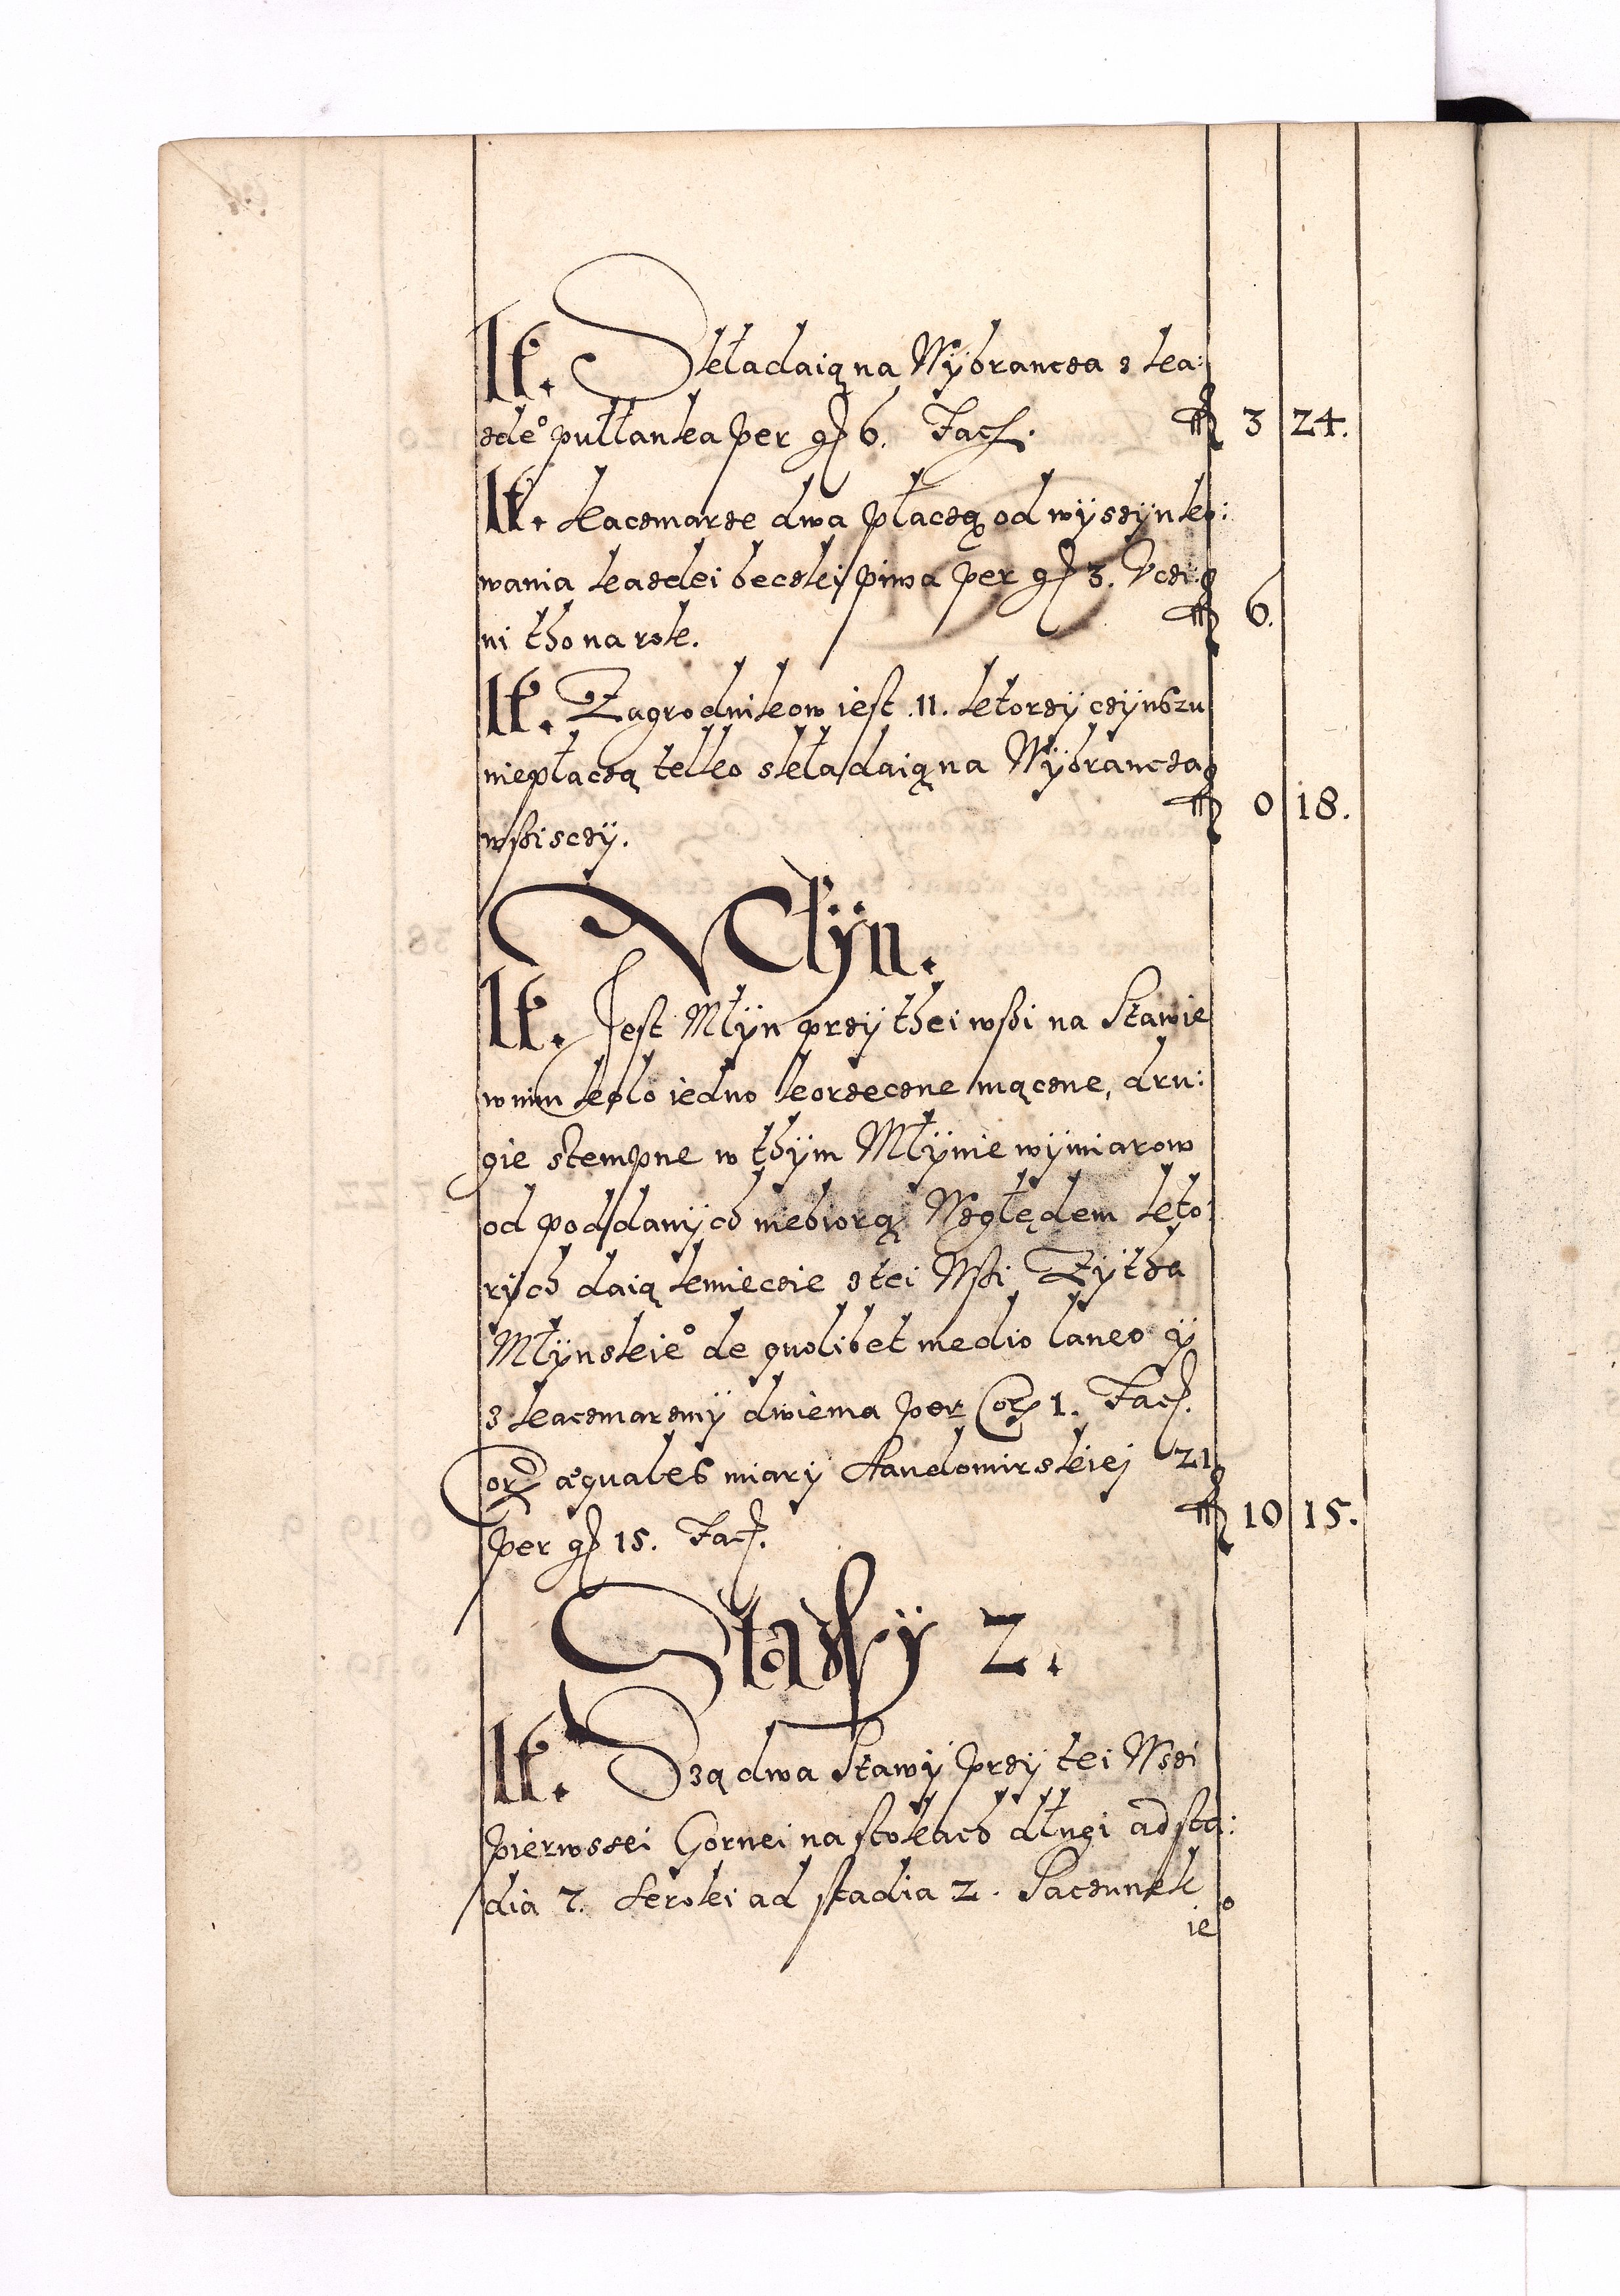 It. Składaią na Wybrancza z ka:
zdeº pułłanka per gſ 6. Facſ. fl 3 24.
It. Kaczmarze dwa płaczą od wyszynko:
wania kazdei beczki piwa per gſ 3. Uczi:
ni tho na rok. fl 6.
It. Zagrodnikow iest .11. ktorzÿ czÿnszu
niepłaczą telko składaią na Wÿbrancza
wßisczÿ. fl 0 18.
Młÿn.
It. Jest Młÿn przÿ thei wßi na Stawie
w nim koło iedno korzeczne mączne, dru:
gie stempne w thÿm Młÿnie wÿmiarow
od poddanÿch niebiorą Względem kto:
rÿch daią kmieczie z tei Wßi Zÿtha
Młÿnskieº de quolibet medio laneo ÿ
z kaczmarzmÿ dwiema per Cor 1. Facſ.
Cor æquales miarÿ Sandomirskiej 21
per gſ 15. Facſ. fl 10 15.
Stawÿ 2.
It. Szą dwa Stawÿ przÿ tei Wszi
pierwszei Gornei na stokach długi ad sta:
dia 7. szeroki ad stadia 2. Saczunek
ieº